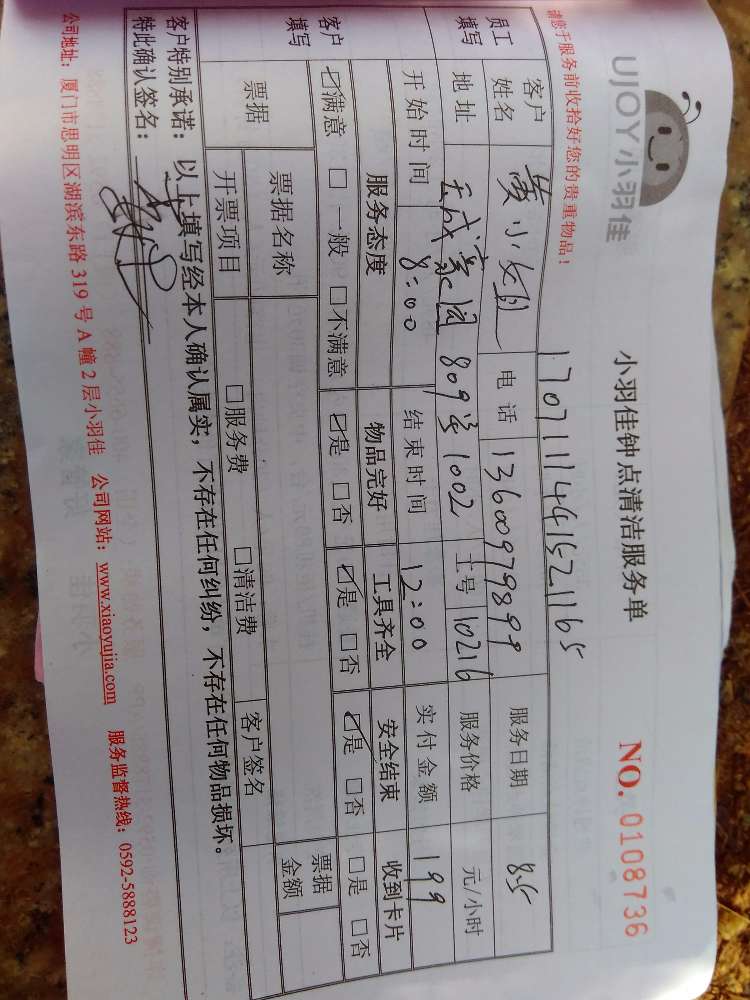 UJOY小羽佳
小羽佳钟点清洁服务单
NO. 0108736
请您于服务前收拾好您的贵重物品！
1707111441521165
员工填写 客户姓名 黄小姐 电话 13600979899 服务日期 8.5
地址 天成豪园809号1002 工号 10216 服务价格 元/小时
开始时间 8:00 结束时间 12:00 实付金额 199
客户填写 服务态度 物品完好 工具齐全 安全结束 收到卡片
☑满意 □一般 □不满意 ☑是 □否 ☑是 □否 ☑是 □否 □是 □否
票据 票据名称 客户签名 票据金额
开票项目 □服务费 □清洁费
客户特别承诺：以上填写经本人确认属实，不存在任何纠纷，不存在任何物品损坏。
特此确认签名：
公司地址：厦门市思明区湖滨东路319号A幢2层小羽佳 公司网站：www.xiaoyujia.com 服务监督热线：0592-5888123